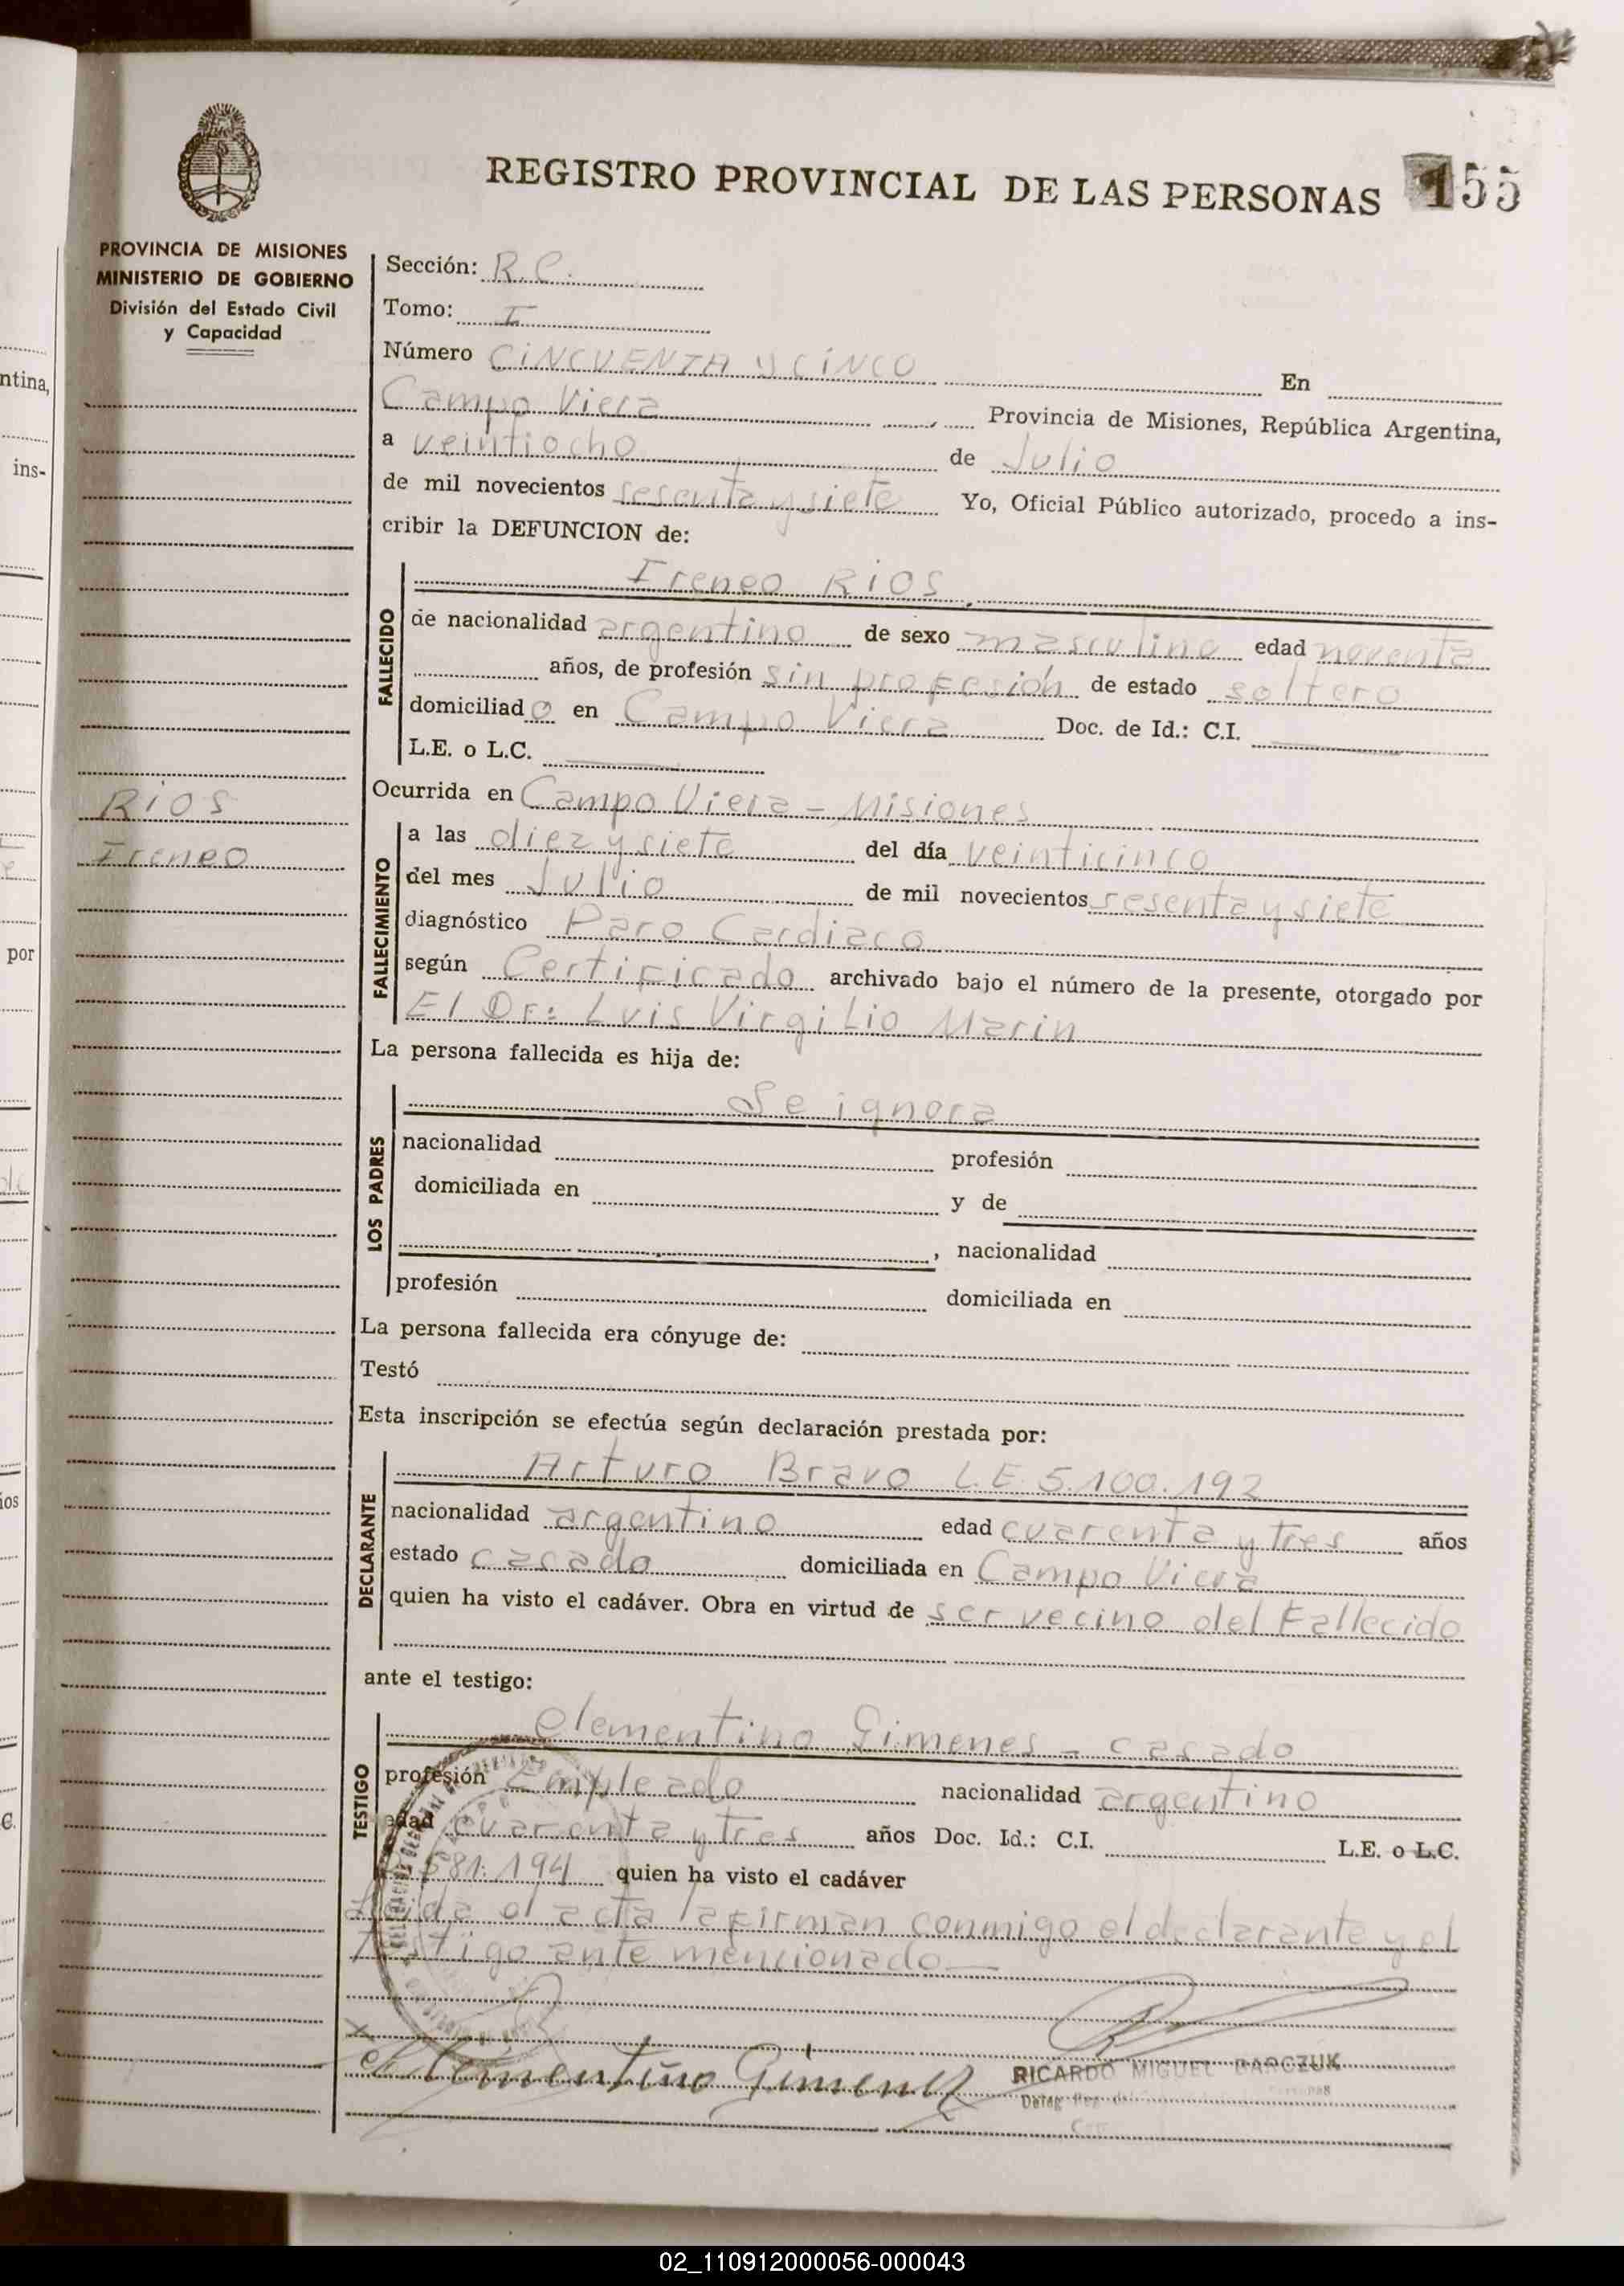 REGISTRO PROVINCIAL DE LAS PERSONAS 155
PROVINCIA DE MISIONES
MINISTERIO DE GOBIERNO
División del Estado Civil
y Capacidad
Sección: R.C.
Tomo: I
Número CINCUENTA y CINCO En
Campo Viera Provincia de Misiones, República Argentina,
a veintiocho de Julio
de mil novecientos sesenta y siete Yo, Oficial Público autorizado, procedo a ins-
cribir la DEFUNCION de:
FALLECIDO
Ireneo RIOS
de nacionalidad argentino de sexo masculino edad noventa
años, de profesión sin profesión de estado soltero
domiciliado en Campo Viera Doc. de Id.: C.I.
L.E. o L.C.
Ocurrida en Campo Viera - Misiones
RIOS
Ireneo
FALLECIMIENTO
a las diez y siete del día veinticinco
del mes Julio de mil novecientos sesenta y siete
diagnóstico Paro Cardiaco
según Certificado archivado bajo el número de la presente, otorgado por
El Dr: Luis Virgilio Marin
La persona fallecida es hija de:
LOS PADRES
Se ignora
nacionalidad profesión
domiciliada en y de
, nacionalidad
profesión domiciliada en
La persona fallecida era cónyuge de:
Testó
Esta inscripción se efectúa según declaración prestada por:
DECLARANTE
Arturo Bravo L.E 5.100.192
nacionalidad argentino edad cuarenta y tres años
estado casado domiciliada en Campo Viera
quien ha visto el cadáver. Obra en virtud de ser vecino del Fallecido
ante el testigo:
TESTIGO
Clementino Gimenes - casado
profesión Empleado nacionalidad argentino
edad cuarenta y tres años Doc. Id.: C.I. L.E. o L.C.
581.194 quien ha visto el cadáver
Leida el acta la firman conmigo el declarante y el
Testigo ante mencionado
Clementino Gimenez
RICARDO MIGUEL BARCZUK
ntina,
ins-
por
02_110912000056-000043